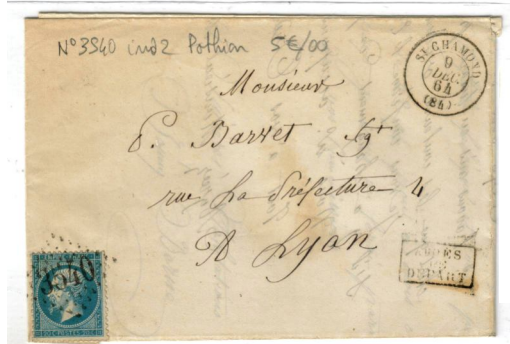 N° 3540 ind 2 Pothion 5€/00
ST CHAMOND
9
DEC.
64
(84)
Monsieur
P. Barret
rue La Préfecture 4
A Lyon
APRÈS
LE
DÉPART
3540
20 C POSTES 20 C